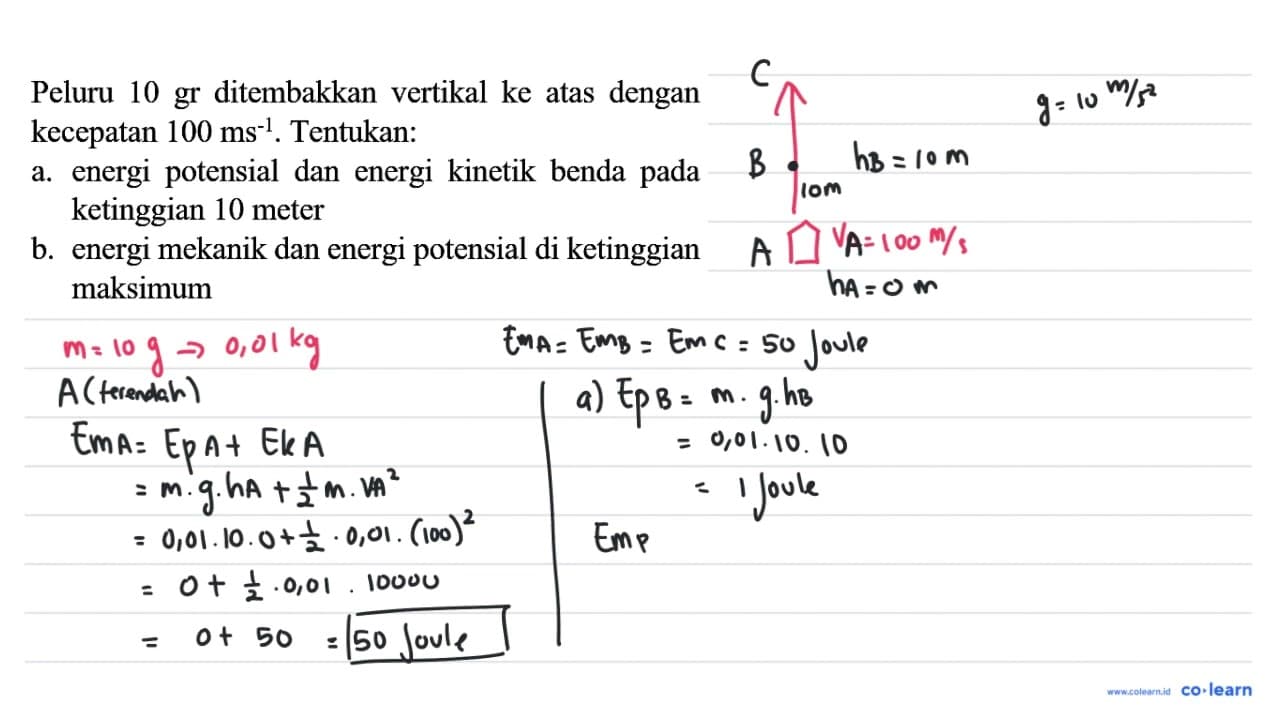 Peluru 10 gr ditembakkan vertikal ke atas dengan
kecepatan 100 ms⁻¹. Tentukan:
a. energi potensial dan energi kinetik benda pada
ketinggian 10 meter
b. energi mekanik dan energi potensial di ketinggian
maksimum
C
g = 10 m/s²
B
hB = 10 m
10m
A
VA = 100 m/s
hA = 0 m
m = 10 g → 0,01 kg
A (terendah)
EmA = EpA + EkA
= m.g.hA + 1/2 m.VA²
= 0,01.10.0 + 1/2 . 0,01.(100)²
= 0 + 1/2 . 0,01 . 10000
= 0 + 50 = 50 Joule
EmA = EmB = EmC = 50 Joule
a) EpB = m.g.hB
= 0,01.10.10
= 1 Joule
Emp
www.colearn.id co·learn